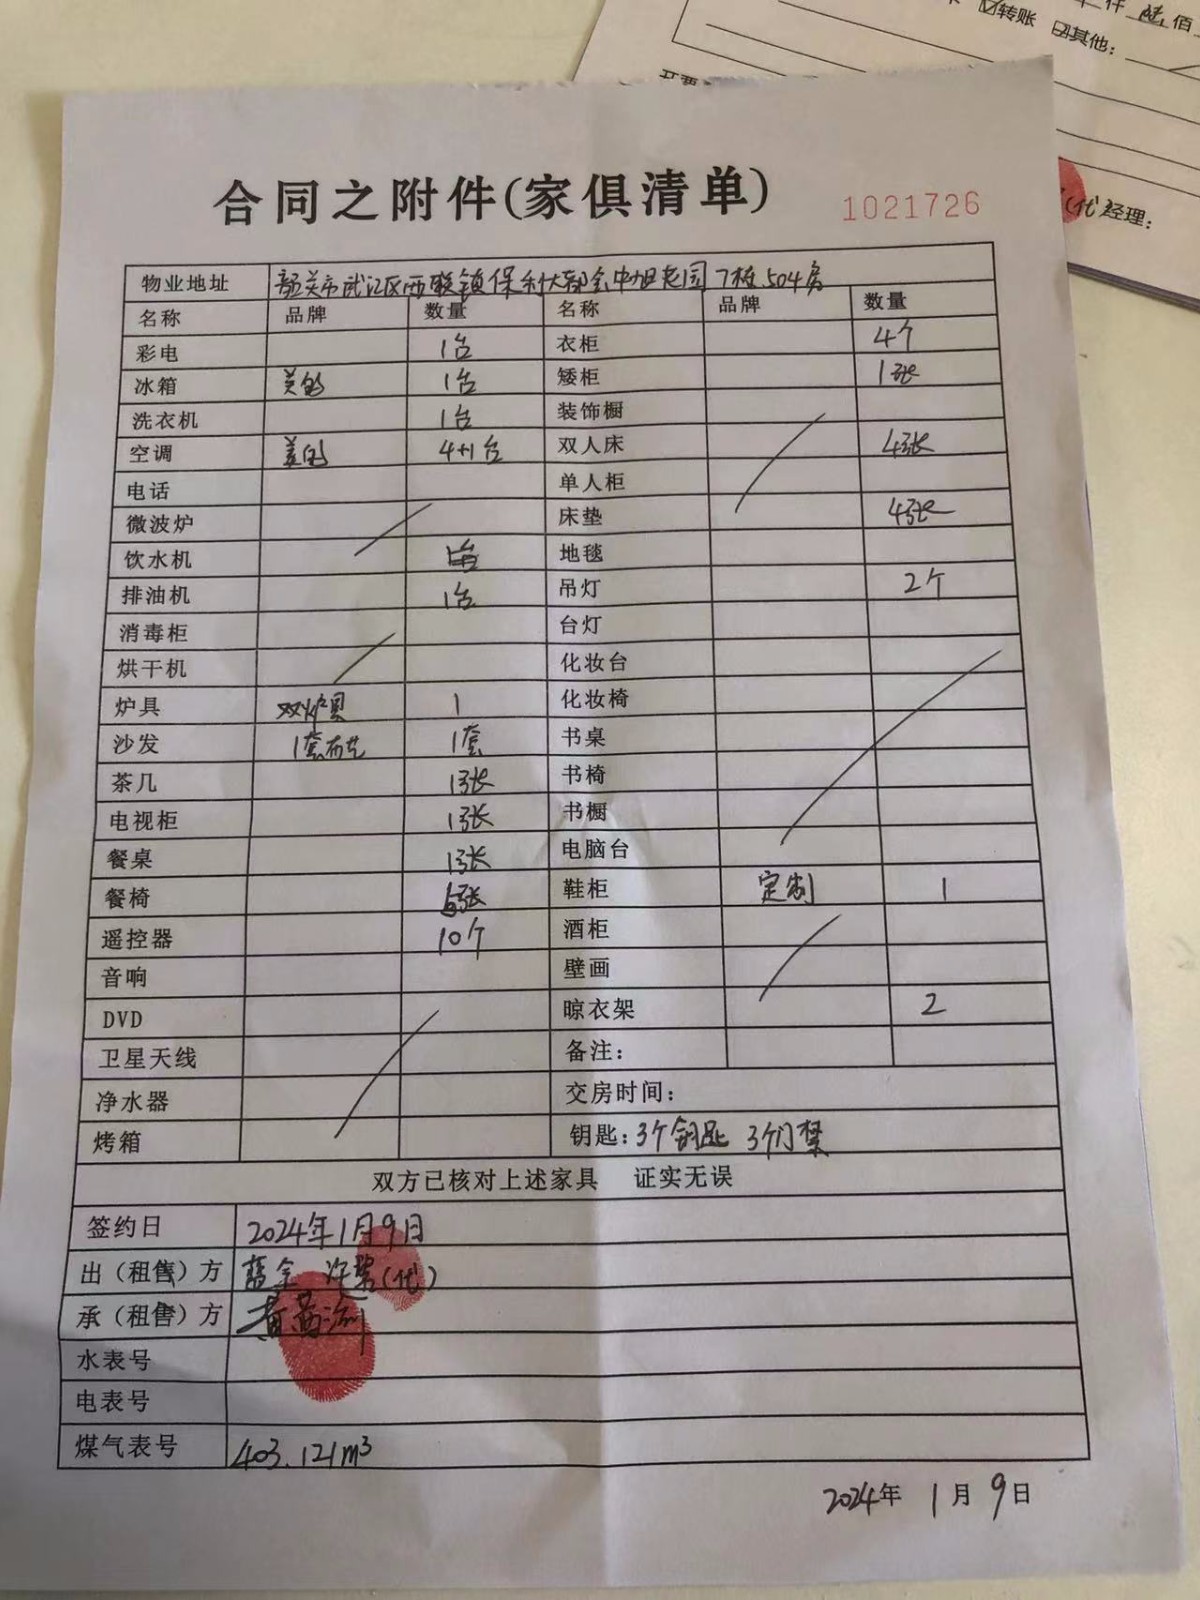 转账 其他：
经理：
合同之附件(家俱清单)
1021726
物业地址 韶关市武江区西联镇保利大都会中旭花园7栋504房
名称 品牌 数量 名称 品牌 数量
彩电 1台 衣柜 4个
冰箱 美的 1台 矮柜 1张
洗衣机 1台 装饰橱
空调 美的 4+1台 双人床 4张
电话 单人柜
微波炉 床垫 4张
饮水机 地毯
排油机 1台 吊灯 2个
消毒柜 台灯
烘干机 化妆台
炉具 双炉具 1 化妆椅
沙发 1套布艺 1套 书桌
茶几 1张 书椅
电视柜 1张 书橱
餐桌 1张 电脑台
餐椅 6张 鞋柜 定制 1
遥控器 10个 酒柜
音响 壁画
DVD 晾衣架 2
卫星天线 备注：
净水器 交房时间：
烤箱 钥匙：3个钥匙 3个门禁
双方已核对上述家具 证实无误
签约日 2024年1月9日
出（租售）方 (代)
承（租售）方
水表号
电表号
煤气表号 403.121m³
2024年 1月 9日